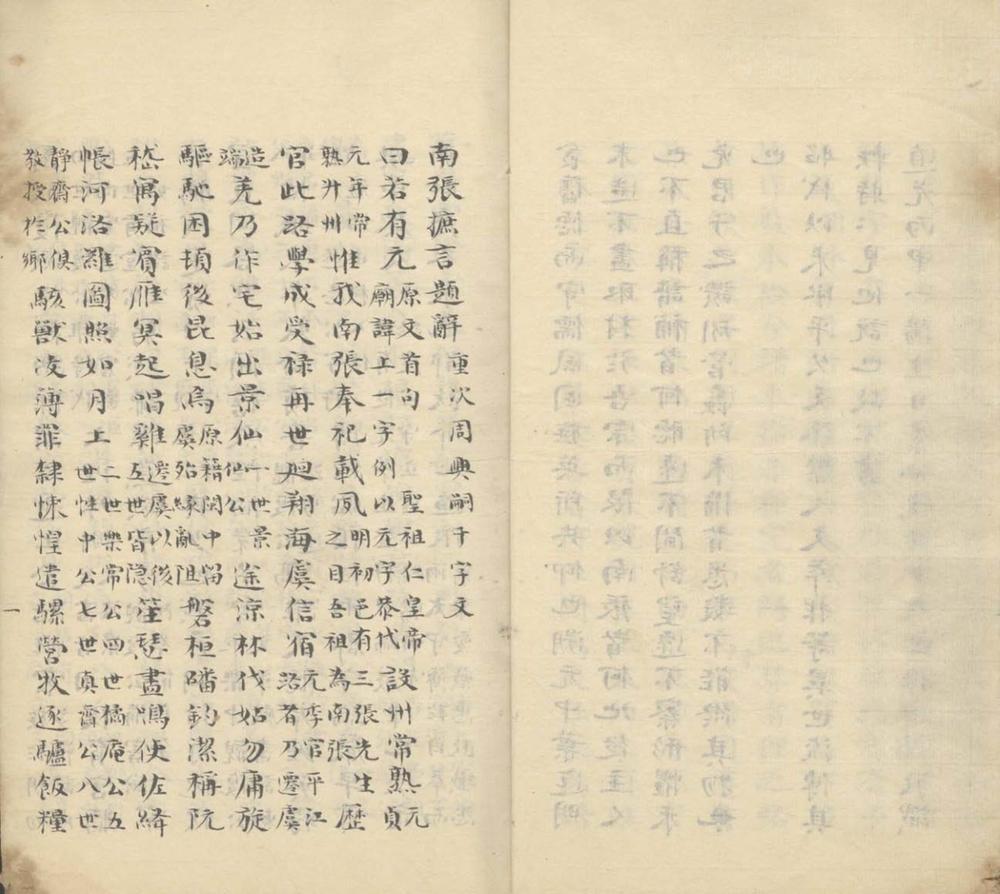 南張摭言題辭 重次周興嗣千字文
曰若有元 原文首句 聖祖仁皇帝
廟諱上一字例以元字恭代 設州常熟 元貞
元年常
熟升州 惟我南張奉祀載夙 明初邑有三張先生
之目吾祖為南張 歷
官此路學成受祿再世廻翔海虞信宿 元季官平江
者乃遷虞
造
端 羌乃作宅始出景仙 一世景
仙公 途涼林伐姑勿庸旋
驅馳困頓後昆息烏 原籍關中留
虞殆亂阻 磐桓磻釣潔稱阮
嵇寓凝賓雁冥起唱雞 遷虞以後
五世皆隱 笙瑟晝鳴使佐絳
帳河洛羅圖照如月上 二世樂常公四世橘庵公五
世性中公七世真齋公八世
靜齋公俱
教授於鄉 駭獸凌薄罪隸悚惶遣騾營牧逐驢飯糧
一